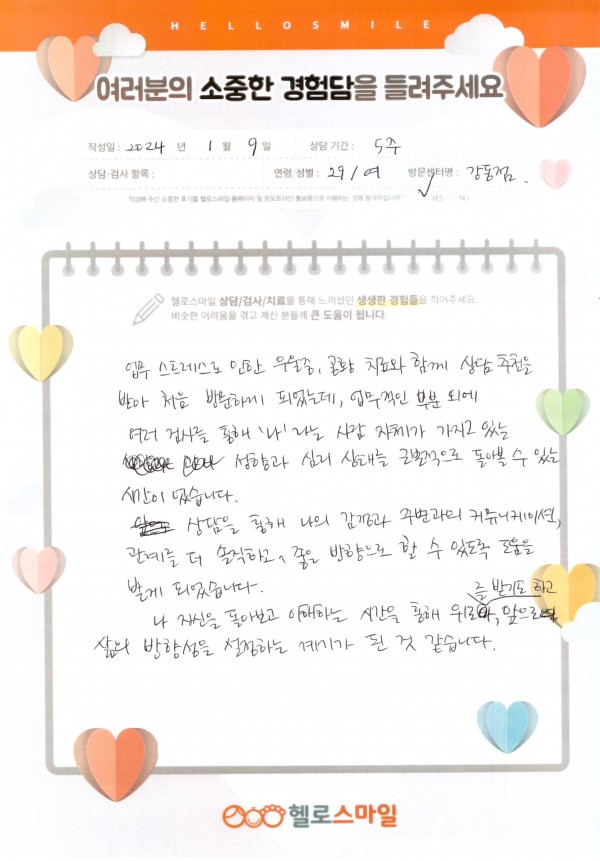 HELLOSMILE
여러분의 소중한 경험담을 들려주세요
작성일 : 2024 년 1 월 9 일 상담 기간 : 5주
상담/검사 항목 : 연령/성별 : 29/여 방문센터명 : 강동점.
작성해 주신 소중한 후기를 헬로스마일 홈페이지 및 온오프라인 홍보용으로 사용하는 것에 동의하십니까? YES NO
헬로스마일 상담/검사/치료를 통해 느끼셨던 생생한 경험들을 적어주세요.
비슷한 어려움을 겪고 계신 분들께 큰 도움이 됩니다.
업무 스트레스로 인한 우울증, 공황 치료와 함께 상담 추천을
받아 처음 방문하게 되었는데, 업무적인 부분 외에
여러 검사를 통해 '나'라는 사람 자체가 가지고 있는
성향과 심리 상태를 근본적으로 돌아볼 수 있는
시간이 었습니다.
상담을 통해 나의 감정과 주변과의 커뮤니케이션,
관계를 더 솔직하고, 좋을 방향으로 할 수 있도록 도움을
받게 되었습니다.
나 자신을 돌아보고 이해하는 시간을 통해 위로를 받기도 하고, 앞으로
삶의 방향성을 설정하는 계기가 된 것 같습니다.
헬로스마일